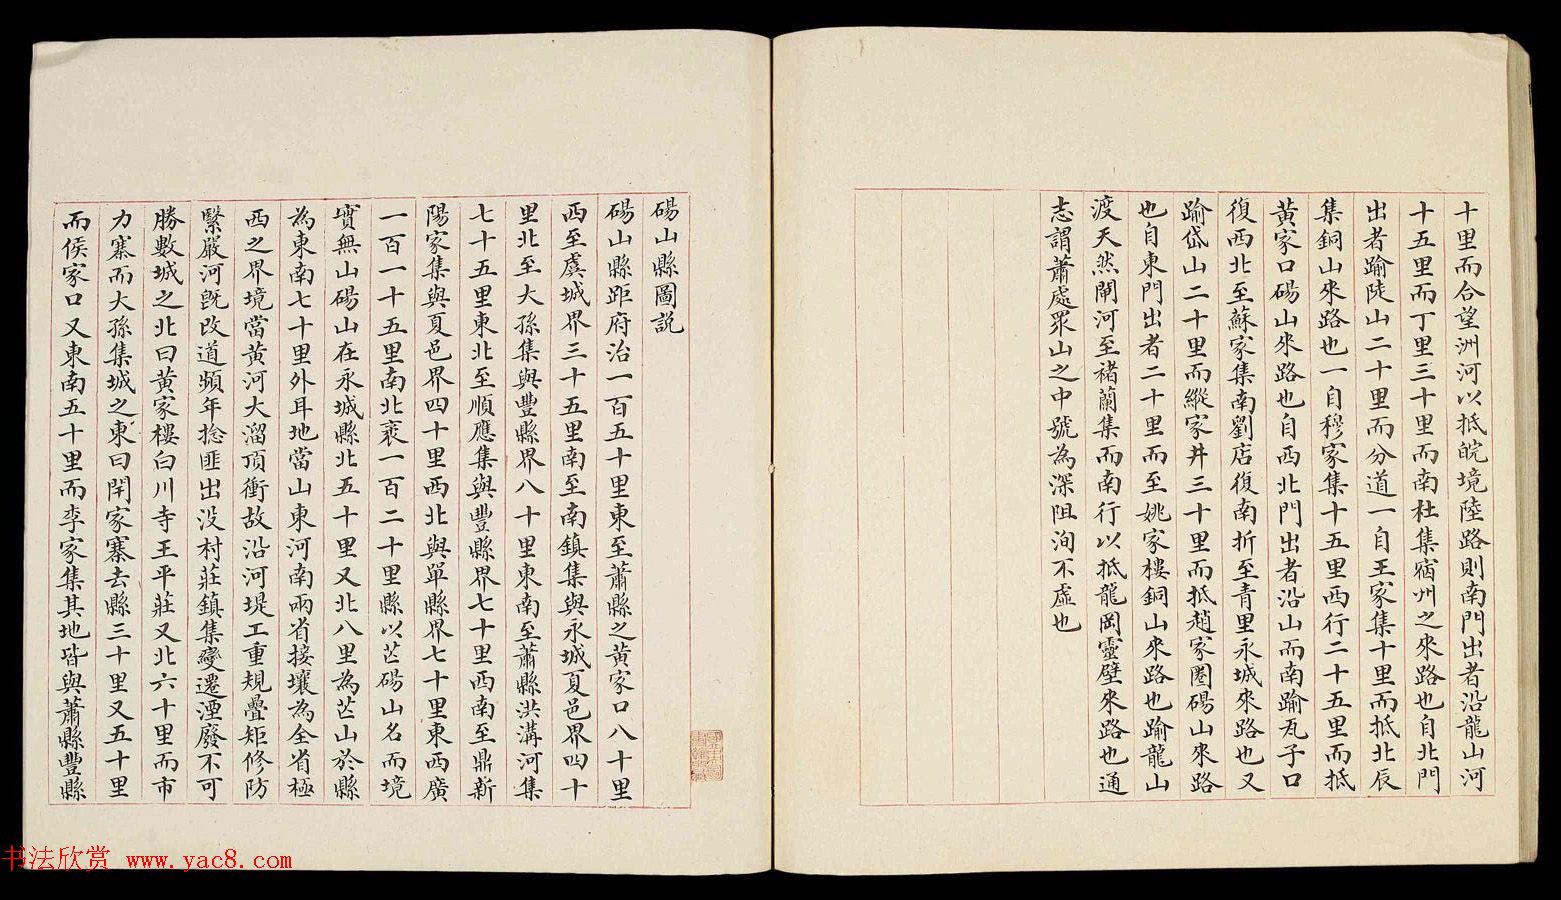 十里而合望洲河以抵皖境陸路則南門出者沿龍山河
十五里而丁里三十里而南杜集宿州之來路也自北門
出者踰陡山二十里而分道一自王家集十里而抵北辰
集銅山來路也一自穆家集十五里西行二十五里而抵
黃家口碭山來路也自西北門出者沿山而南踰瓦子口
復西北至蘇家集南劉店復南折至青里永城來路也又
踰岱山二十里而縱家井三十里而抵趙家圏碭山來路
也自東門出者二十里而至姚家樓銅山來路也踰龍山
渡天然閘河至禇蘭集而南行以抵龍岡靈壁來路也通
志謂蕭處眾山之中號為深阻洵不虛也
碭山縣圖説
碭山縣距府治一百五十里東至蕭縣之黃家口八十里
西至虞城界三十五里南至南鎮集與永城夏邑界四十
里北至大孫集與豐縣界八十里東南至蕭縣洪溝河集
七十五里東北至順應集與豐縣界七十里西南至鼎新
陽家集與夏邑界四十里西北與單縣界七十里東西廣
一百一十五里南北袤一百二十里縣以芒碭山名而境
實無山碭山在永城縣北五十里又北八里為芒山於縣
為東南七十里外耳地當山東河南兩省接壤為全省極
西之界境當黃河大溜頂衝故沿河堤工重規疊矩修防
緊嚴河既改道頻年捻匪出沒村莊鎮集變遷湮廢不可
勝數城之北曰黃家樓白川寺王平莊又北六十里而市
力寨而大孫集城之東曰閈家寨去縣三十里又五十里
而侯家口又東南五十里而李家集其地皆與蕭縣豐縣
书法欣赏 www.yac8.com